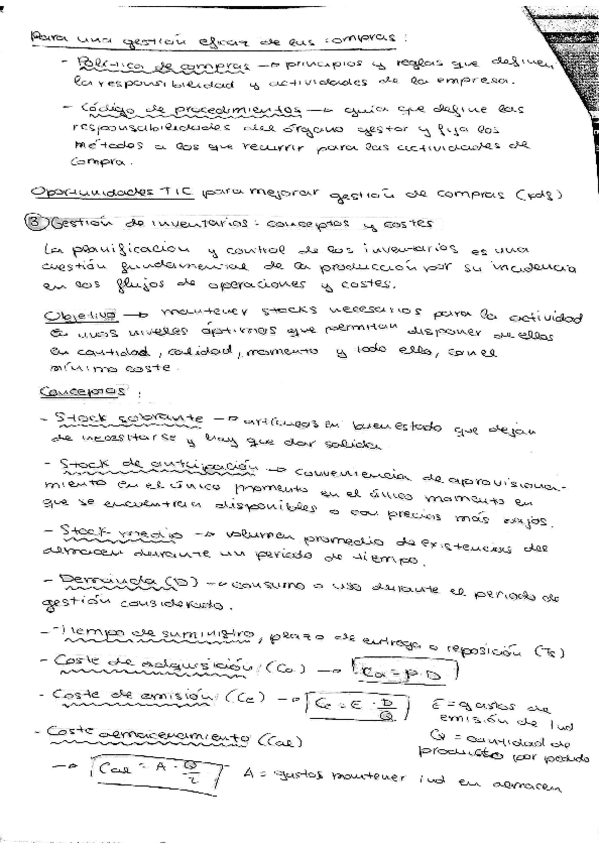 Para una gestión eficaz de las compras:
- Política de compras → principios y reglas que definen
la responsabilidad y actividades de la empresa.
- Código de procedimientos → guía que define las
responsabilidades del órgano gestor y fija los
métodos a los que recurrir para las actividades de
compra.
Oportunidades TIC para mejorar gestión de compras (pdf)
③ Gestión de inventarios: conceptos y costes
La planificación y control de los inventarios es una
cuestión fundamental de la producción por su incidencia
en los flujos de operaciones y costes.
Objetivo → mantener stocks necesarios para la actividad
en unos niveles óptimos que permitan disponer de ellos
en cantidad, calidad, momento y todo ello, con el
mínimo coste.
Conceptos:
- Stock sobrante → artículos en buen estado que dejan
de necesitarse y hay que dar salida
- Stock de anticipación → conveniencia de aprovisiona-
miento en el único momento en el único momento en
que se encuentran disponibles o con precios más bajos.
- Stock medio → volumen promedio de existencias del
almacén durante un periodo de tiempo.
- Demanda (D) → consumo o uso durante el periodo de
gestión considerado.
- Tiempo de suministro, plazo de entrega o reposición (Ts)
- Coste de adquisición (Ca) → Ca = P · D
- Coste de emisión (Ce) → Ce = E · D/Q
E = gastos de
emisión de 1 ud
Q = cantidad de
producto por pedido
- Coste almacenamiento (Cal)
→ Cal = A · Q/2 A = gastos mantener 1 ud en almacén